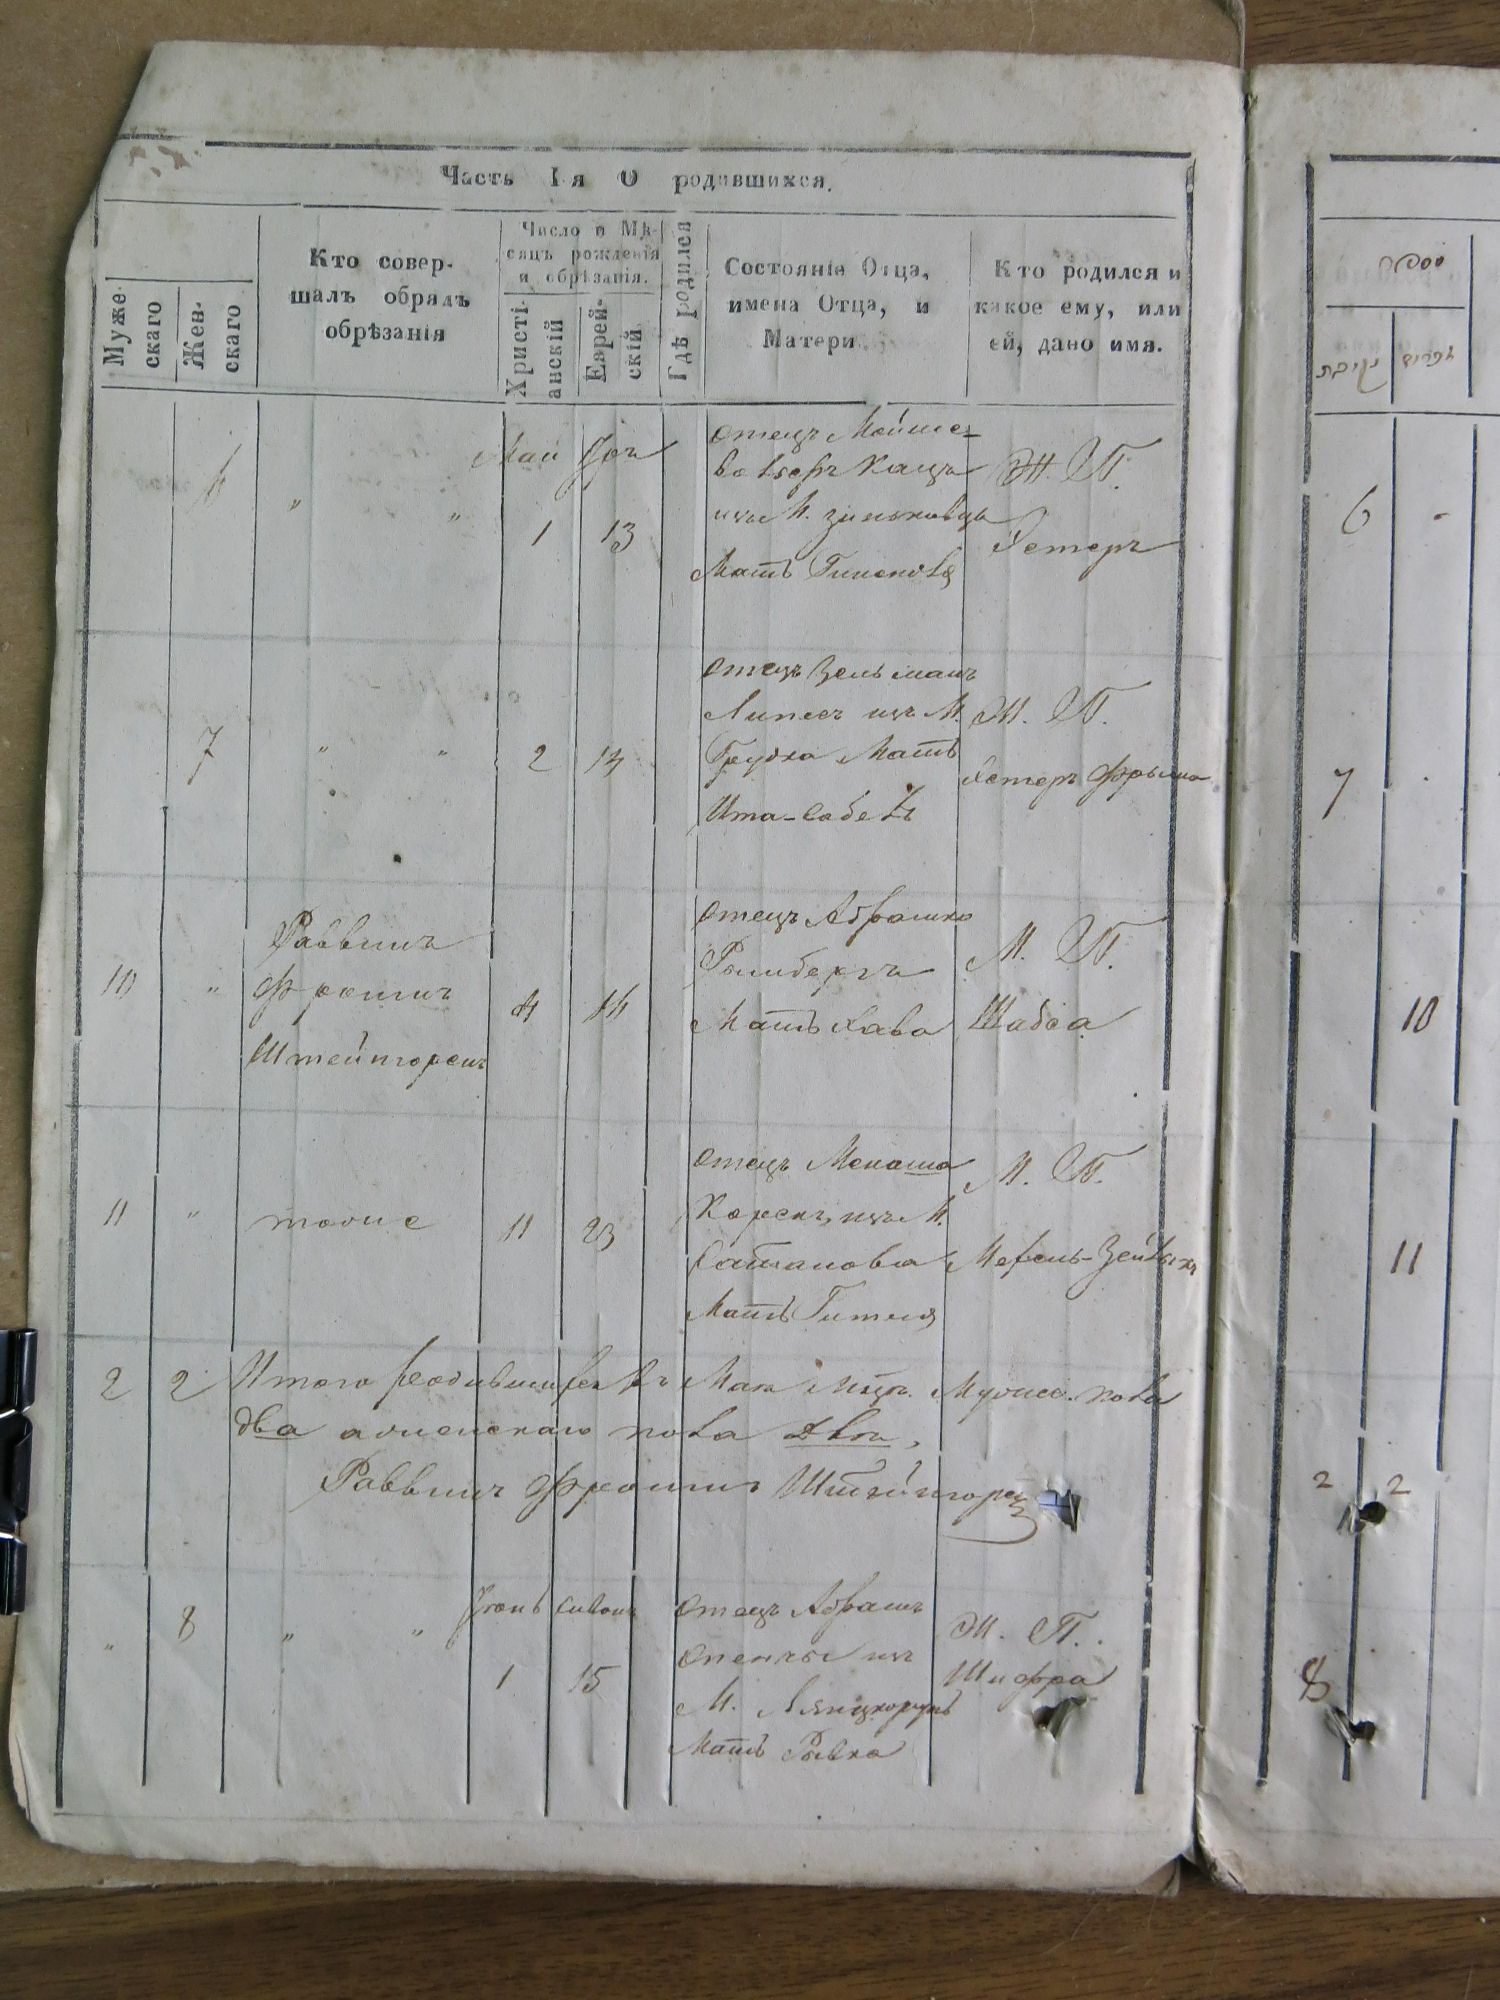 Часть Iя О родившихся.
Муже-
скаго
Жен-
скаго
Кто совер-
шалъ обрядъ
обрѣзанія
Число и Мѣ-
сяцъ рожденія
и обрѣзанія.
Христі-
анскій
Еврей-
скій
Гдѣ родился
Состояніе Отца,
имена Отца, и
Матери
Кто родился и
какое ему, или
ей, дано имя.
Май
Отецъ Мойше-
Кацъ
изъ М. Зиньковцы
Мать
Ж. П.
Естеръ
6 " " 1 13
Отецъ Зельманъ
изъ М.
Мать
Ита-
Ж. П.
Естеръ Фрыма
7 " " 2 13
Раввинъ
Фроимъ
Штейнгоренъ
10 " 4 16
Отецъ Абрашко
Мать Хава
М. П.
Шабса
11 " тоже 11 23
Отецъ Менаша
Коренъ, изъ М.
Сатанова
Мать Гителя
М. П.
2 2 Итого родившихся въ Маѣ Мцѣ. Мужес. пола
два а женскаго пола двѣ,
Раввинъ Фроимъ Штейнгоренъ
" 8 " " Іюнь Сивонъ
1 15
Отецъ Абрамъ
изъ
М. Лянцкорунь
Мать Рывка
Ж. П.
Шифра
נקיבת
6 -
7
10
11
2 2
8